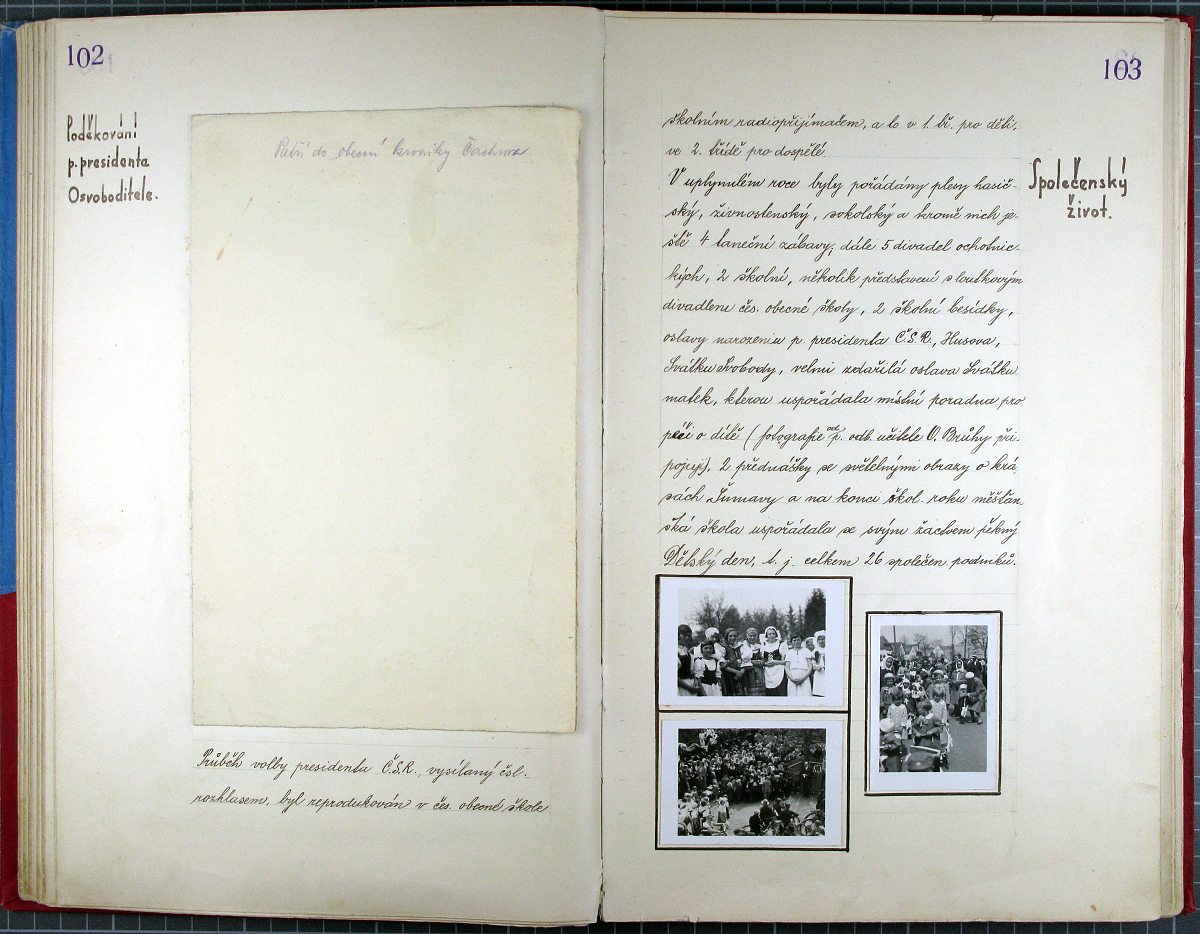 102
Poděkování
p. presidenta
Osvoboditele.
Patří do obecní kroniky
Průběh volby presidenta Č.S.R., vysílaný čsl.
rozhlasem, byl reprodukován v čes. obecné škole
103
školním radiopřijímačem, a to v 1. tř. pro děti,
ve 2. třídě pro dospělé.
Společenský
život.
V uplynulém roce byly pořádány plesy hasič-
ský, živnostenský, sokolský a kromě nich je-
ště 4 taneční zábavy, dále 5 divadel ochotnic-
kých, 2 školní, několik představení s loutkovým
divadlem čes. obecné školy, 2 školní besídky,
oslavy narozenin p. presidenta Č.S.R., Husova,
Svátku Svobody, velmi zdařilá oslava Svátku
matek, kterou uspořádala místní poradna pro
péči o dítě (fotografie od p. odb. učitele O. Brůhy při-
pojuji), 2 přednášky se světelnými obrazy o krá-
sách Šumavy a na konci škol. roku měšťan-
ská škola uspořádala se svým žactvem pěkný
Dětský den, t. j. celkem 26 společen. podniků.